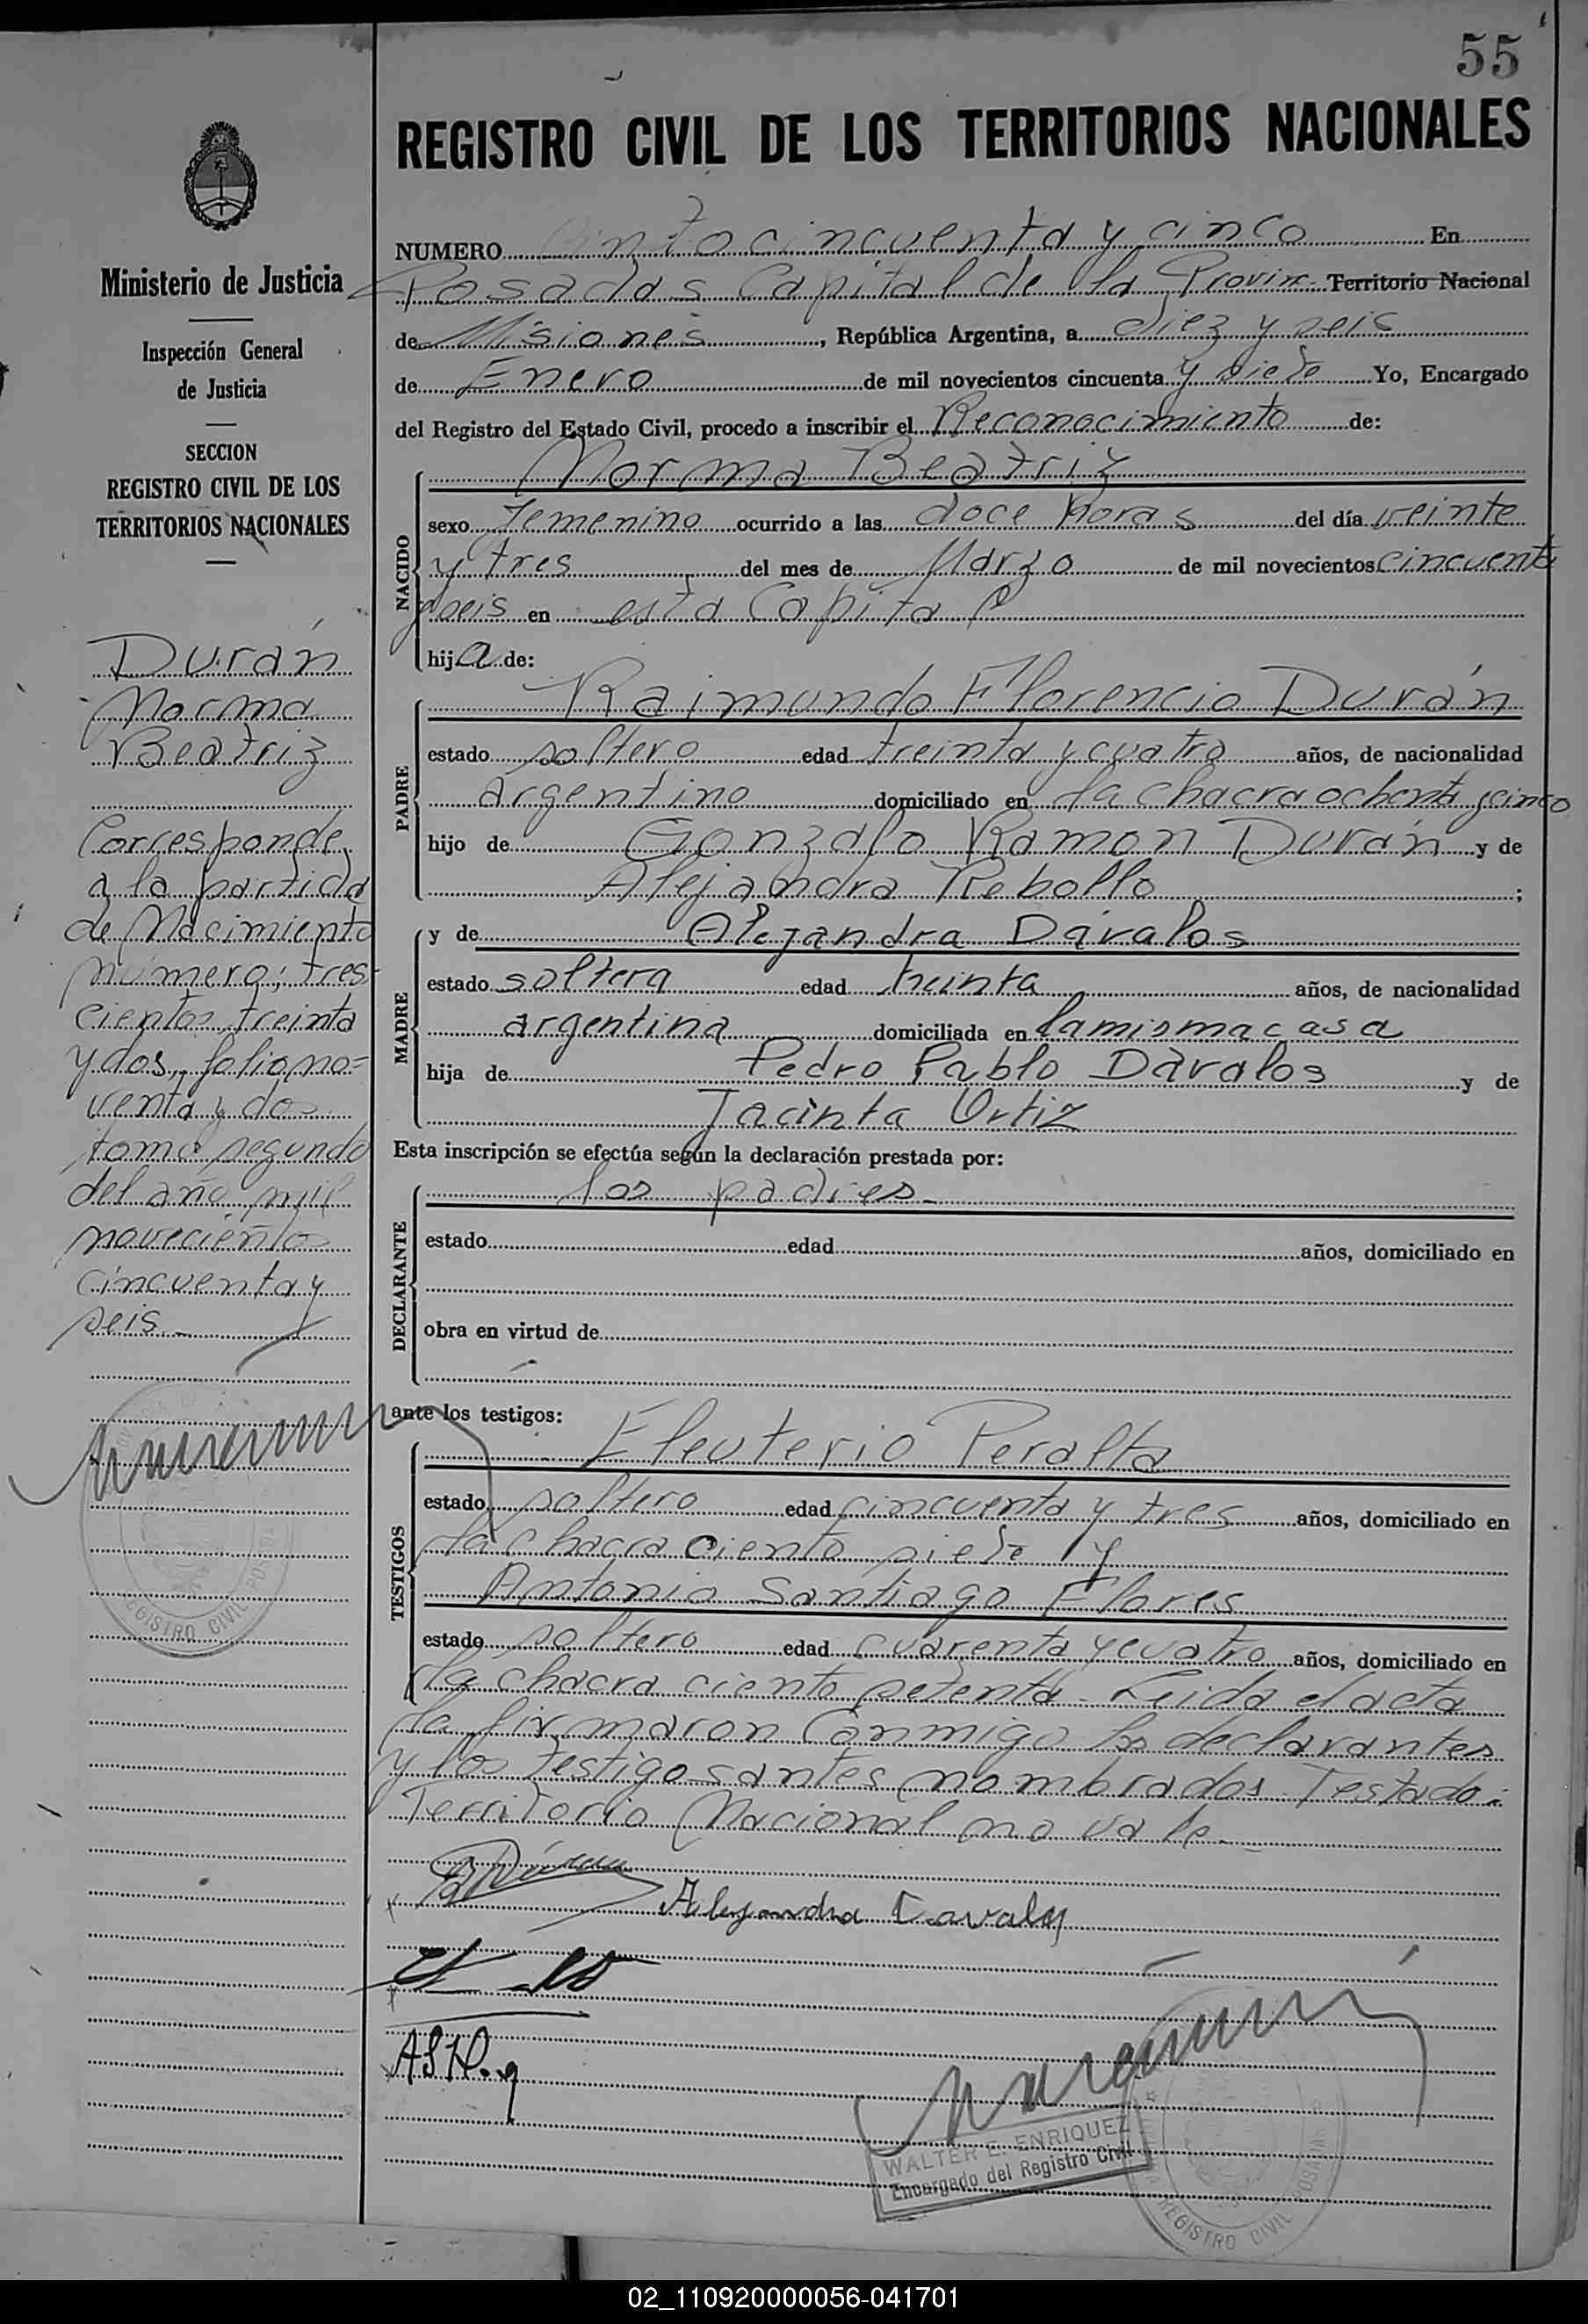 55
REGISTRO CIVIL DE LOS TERRITORIOS NACIONALES
Ministerio de Justicia
Inspección General
de Justicia
SECCION
REGISTRO CIVIL DE LOS
TERRITORIOS NACIONALES
Durán
Norma
Beatriz
Corresponde
a la partida
de Nacimiento
número; tres-
cientos treinta
y dos, folio no=
venta y dos
tomo segundo
del año mil
novecientos
cincuenta y
seis.-
NUMERO cincuenta y cinco En
Posadas Capital de la Provin- Territorio Nacional
de Misiones, República Argentina, a diez y seis
de Enero de mil novecientos cincuenta y siete Yo, Encargado
del Registro del Estado Civil, procedo a inscribir el Reconocimiento de:
NACIDO
Norma Beatriz
sexo femenino ocurrido a las doce horas del día veinte
y tres del mes de Marzo de mil novecientos cincuenta
y seis en esta Capital
hija de:
PADRE
Raimundo Florencio Durán
estado soltero edad treinta y cuatro años, de nacionalidad
argentino domiciliado en la chacra ochenta y cinco
hijo de Gonzalo Ramon Durán y de
Alejandra Rebollo;
MADRE
y de Alejandra Dávalos
estado soltera edad treinta años, de nacionalidad
argentina domiciliada en la misma casa
hija de Pedro Pablo Dávalos y de
Jacinta Ortiz
Esta inscripción se efectúa según la declaración prestada por:
DECLARANTE
los padres-
estado edad años, domiciliado en
obra en virtud de
ante los testigos:
TESTIGOS
Eleuterio Peralta
estado soltero edad cincuenta y tres años, domiciliado en
la chacra ciento siete y
Antonio Santiago Flores
estado soltero edad cuarenta y cuatro años, domiciliado en
la chacra ciento setenta. Leida el acta
la firmaron conmigo los declarantes
y los testigos antes nombrados. Testado:
Territorio Nacional no vale.-
Alejandra Davalos
WALTER E. ENRIQUEZ
Encargado del Registro Civil
REGISTRO CIVIL
REGISTRO CIVIL POSADAS
02_110920000056-041701